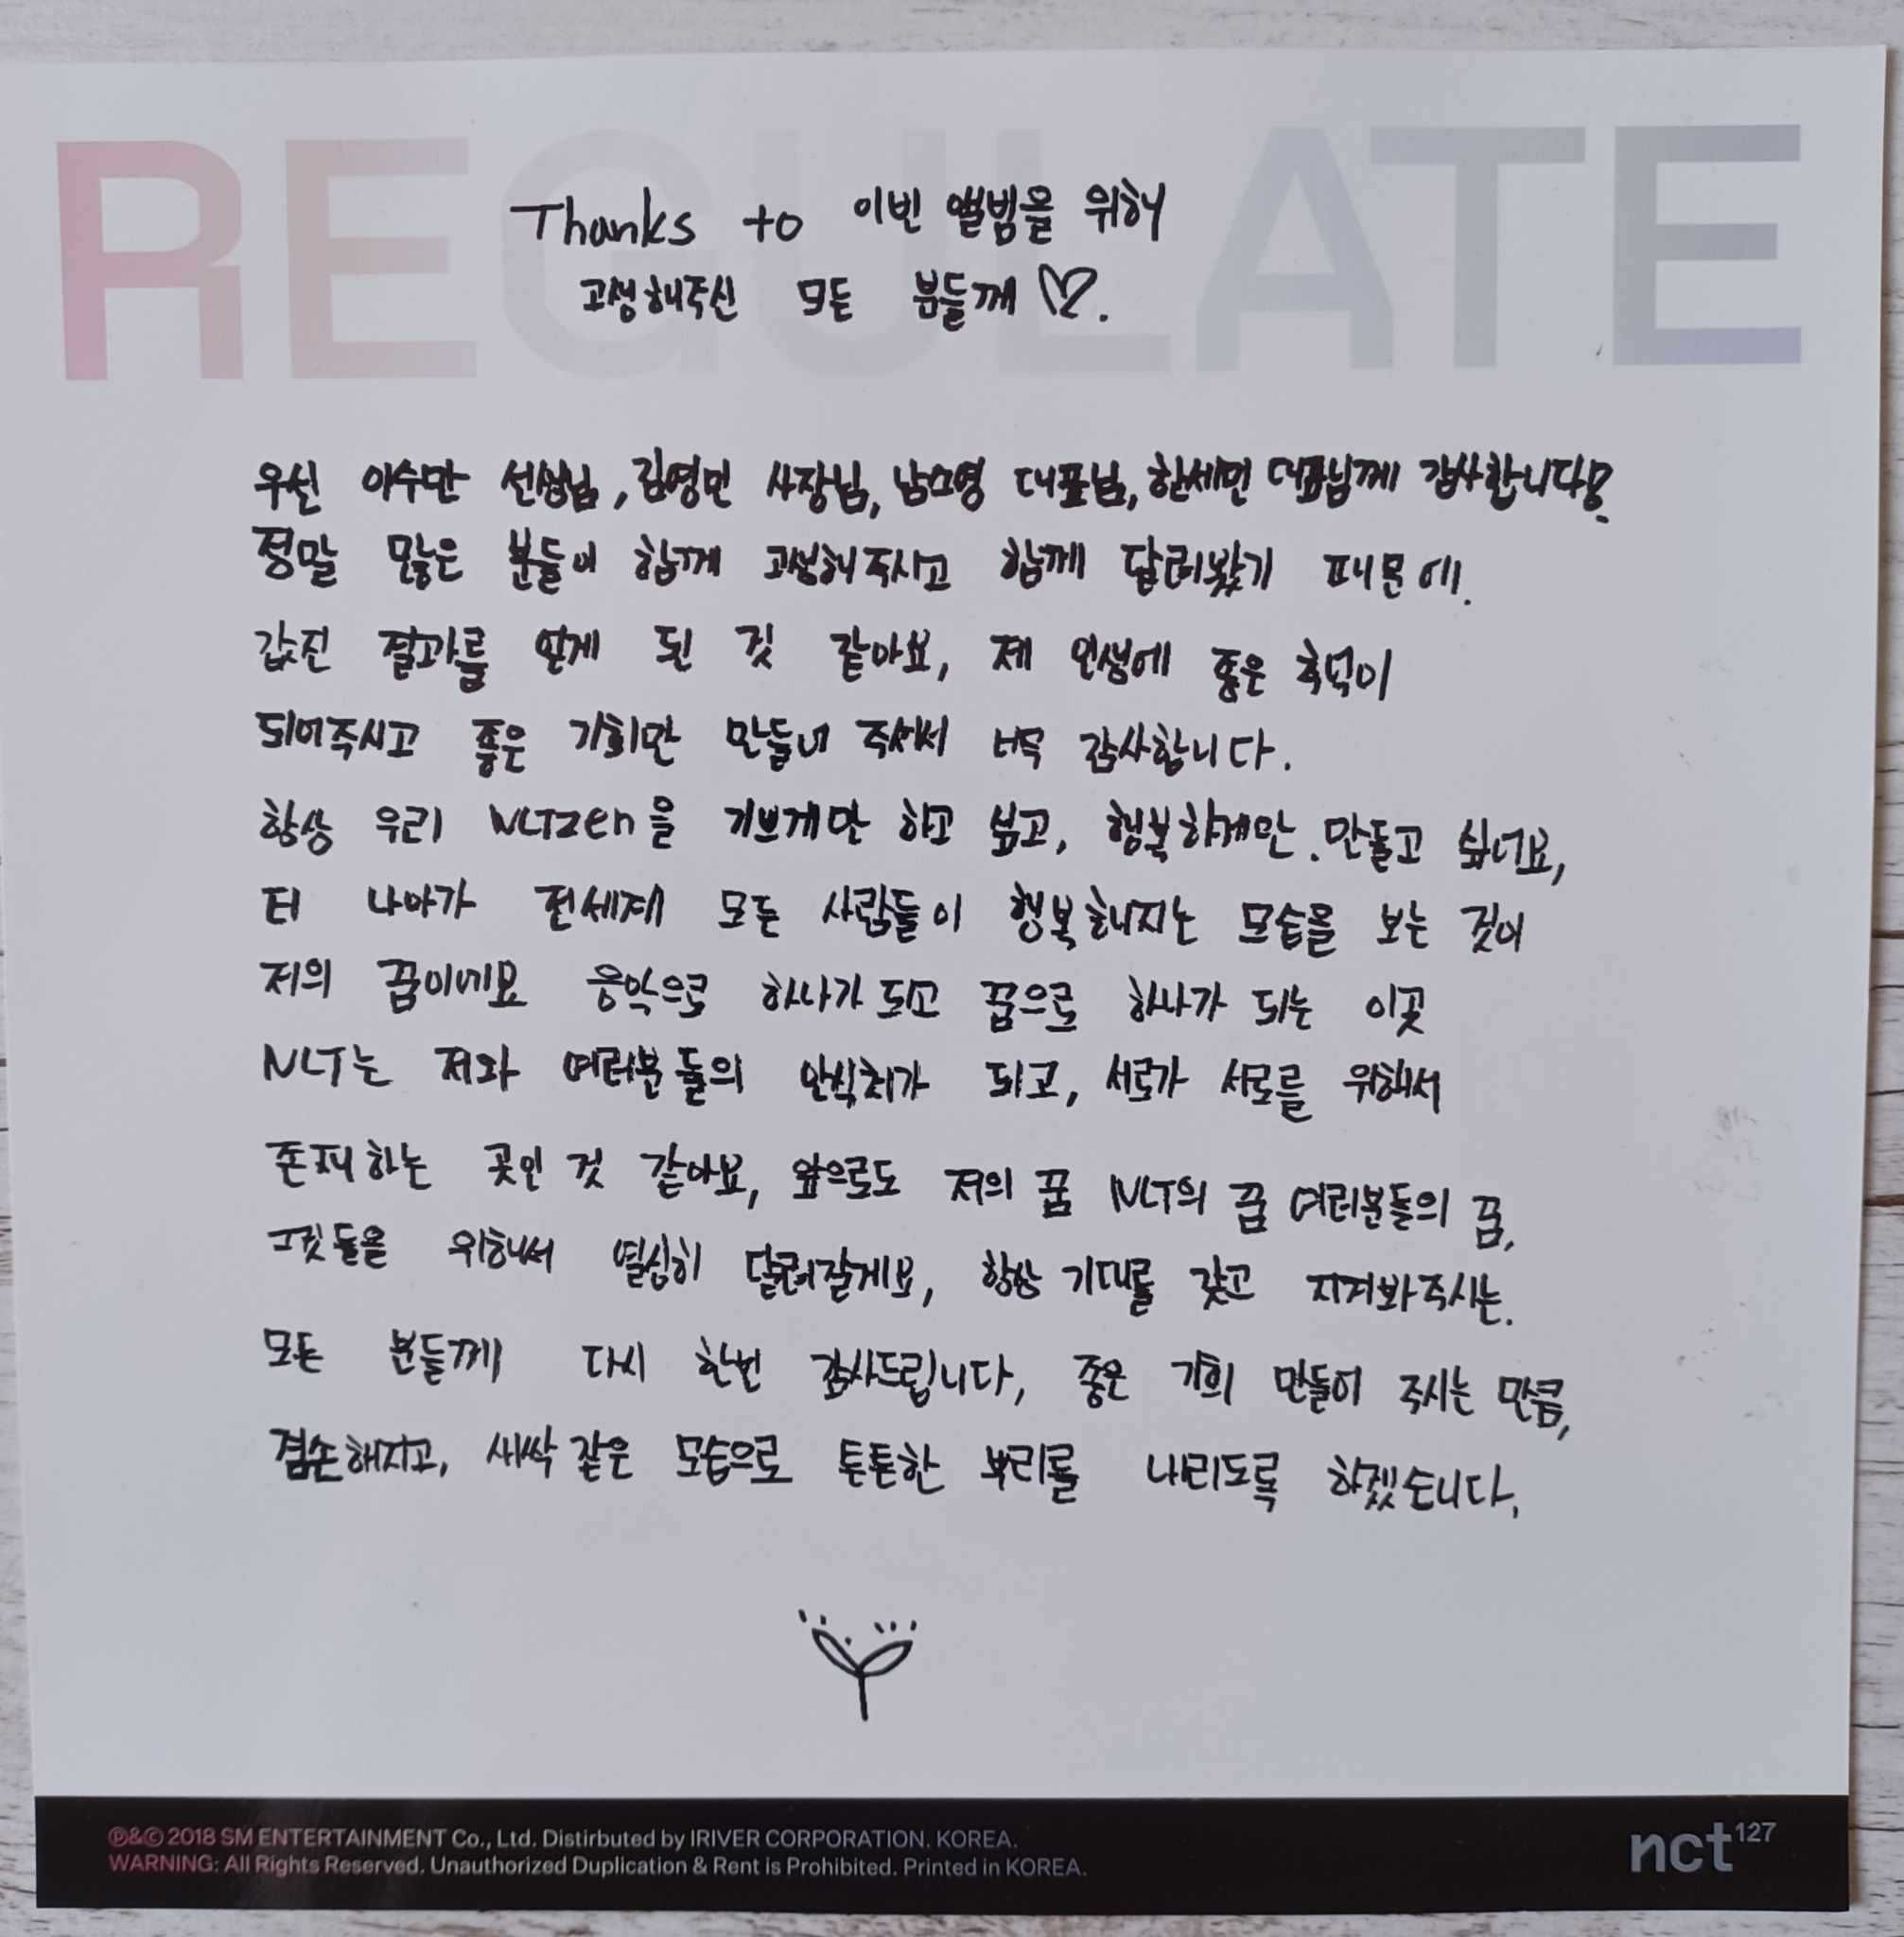 REGULATE
Thanks to 이번 앨범을 위해
고생해주신 모든 분들께 ♡.
우선 이수만 선생님, 김영민 사장님, 남소영 대표님, 한세민 대표님께 감사합니다!
정말 많은 분들이 함께 고생해주시고 함께 달려봤기 때문에.
값진 결과를 얻게 된 것 같아요, 제 인생에 좋은 추억이
되어주시고 좋은 기회만 만들어 주셔서 너무 감사합니다.
항상 우리 NCTzen을 기쁘게만 하고 싶고, 행복하게만.만들고 싶네요,
더 나아가 전세계 모든 사람들이 행복해지는 모습을 보는 것이
저의 꿈이에요 음악으로 하나가 되고 꿈으로 하나가 되는 이곳
NCT는 저와 여러분들의 안식처가 되고, 서로가 서로를 위해서
존재하는 곳인 것 같아요, 앞으로도 저의 꿈 NCT의 꿈 여러분들의 꿈,
그것들을 위해서 열심히 달려갈게요, 항상 기대를 갖고 지켜봐주시는.
모든 분들께 다시 한번 감사드립니다, 좋은 기회 만들어 주시는 만큼,
겸손해지고, 새싹 같은 모습으로 튼튼한 뿌리를 내리도록 하겠습니다.
℗&© 2018 SM ENTERTAINMENT Co., Ltd. Distirbuted by IRIVER CORPORATION. KOREA.
WARNING: All Rights Reserved. Unauthorized Duplication & Rent is Prohibited. Printed in KOREA.
nct127